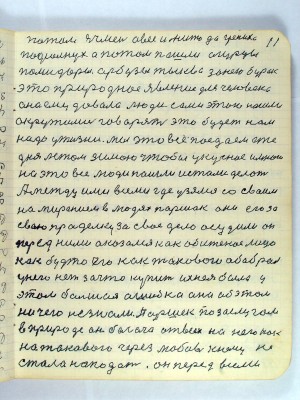 потом ячмен овес и жито да гречиха 11
подсолнух а потом пошли огурцы
помидоры. арбузы тыква заною бурак
это природное явление для человека
она следовала люди сами этого нашли
окрутили говорят это будет нам
надо у жизни. мы это всё поедаем от
дня летом зимою чтобы укусное
на это все люди пошли и стали делат
А между ими всеми где узялся со своим
на мирением в людях паршек они его за
свою проделку за свое дело осудили он
перед ними оказался как обиженое лицо
как будто его как такового обобрал
у него нет за что купит
этом болшая ошибка она об этом
ничего не знали. Паршек по заслугам
в природе он богато отвык на него как
на такового через любов к нему не
стала нападат. он перед всеми